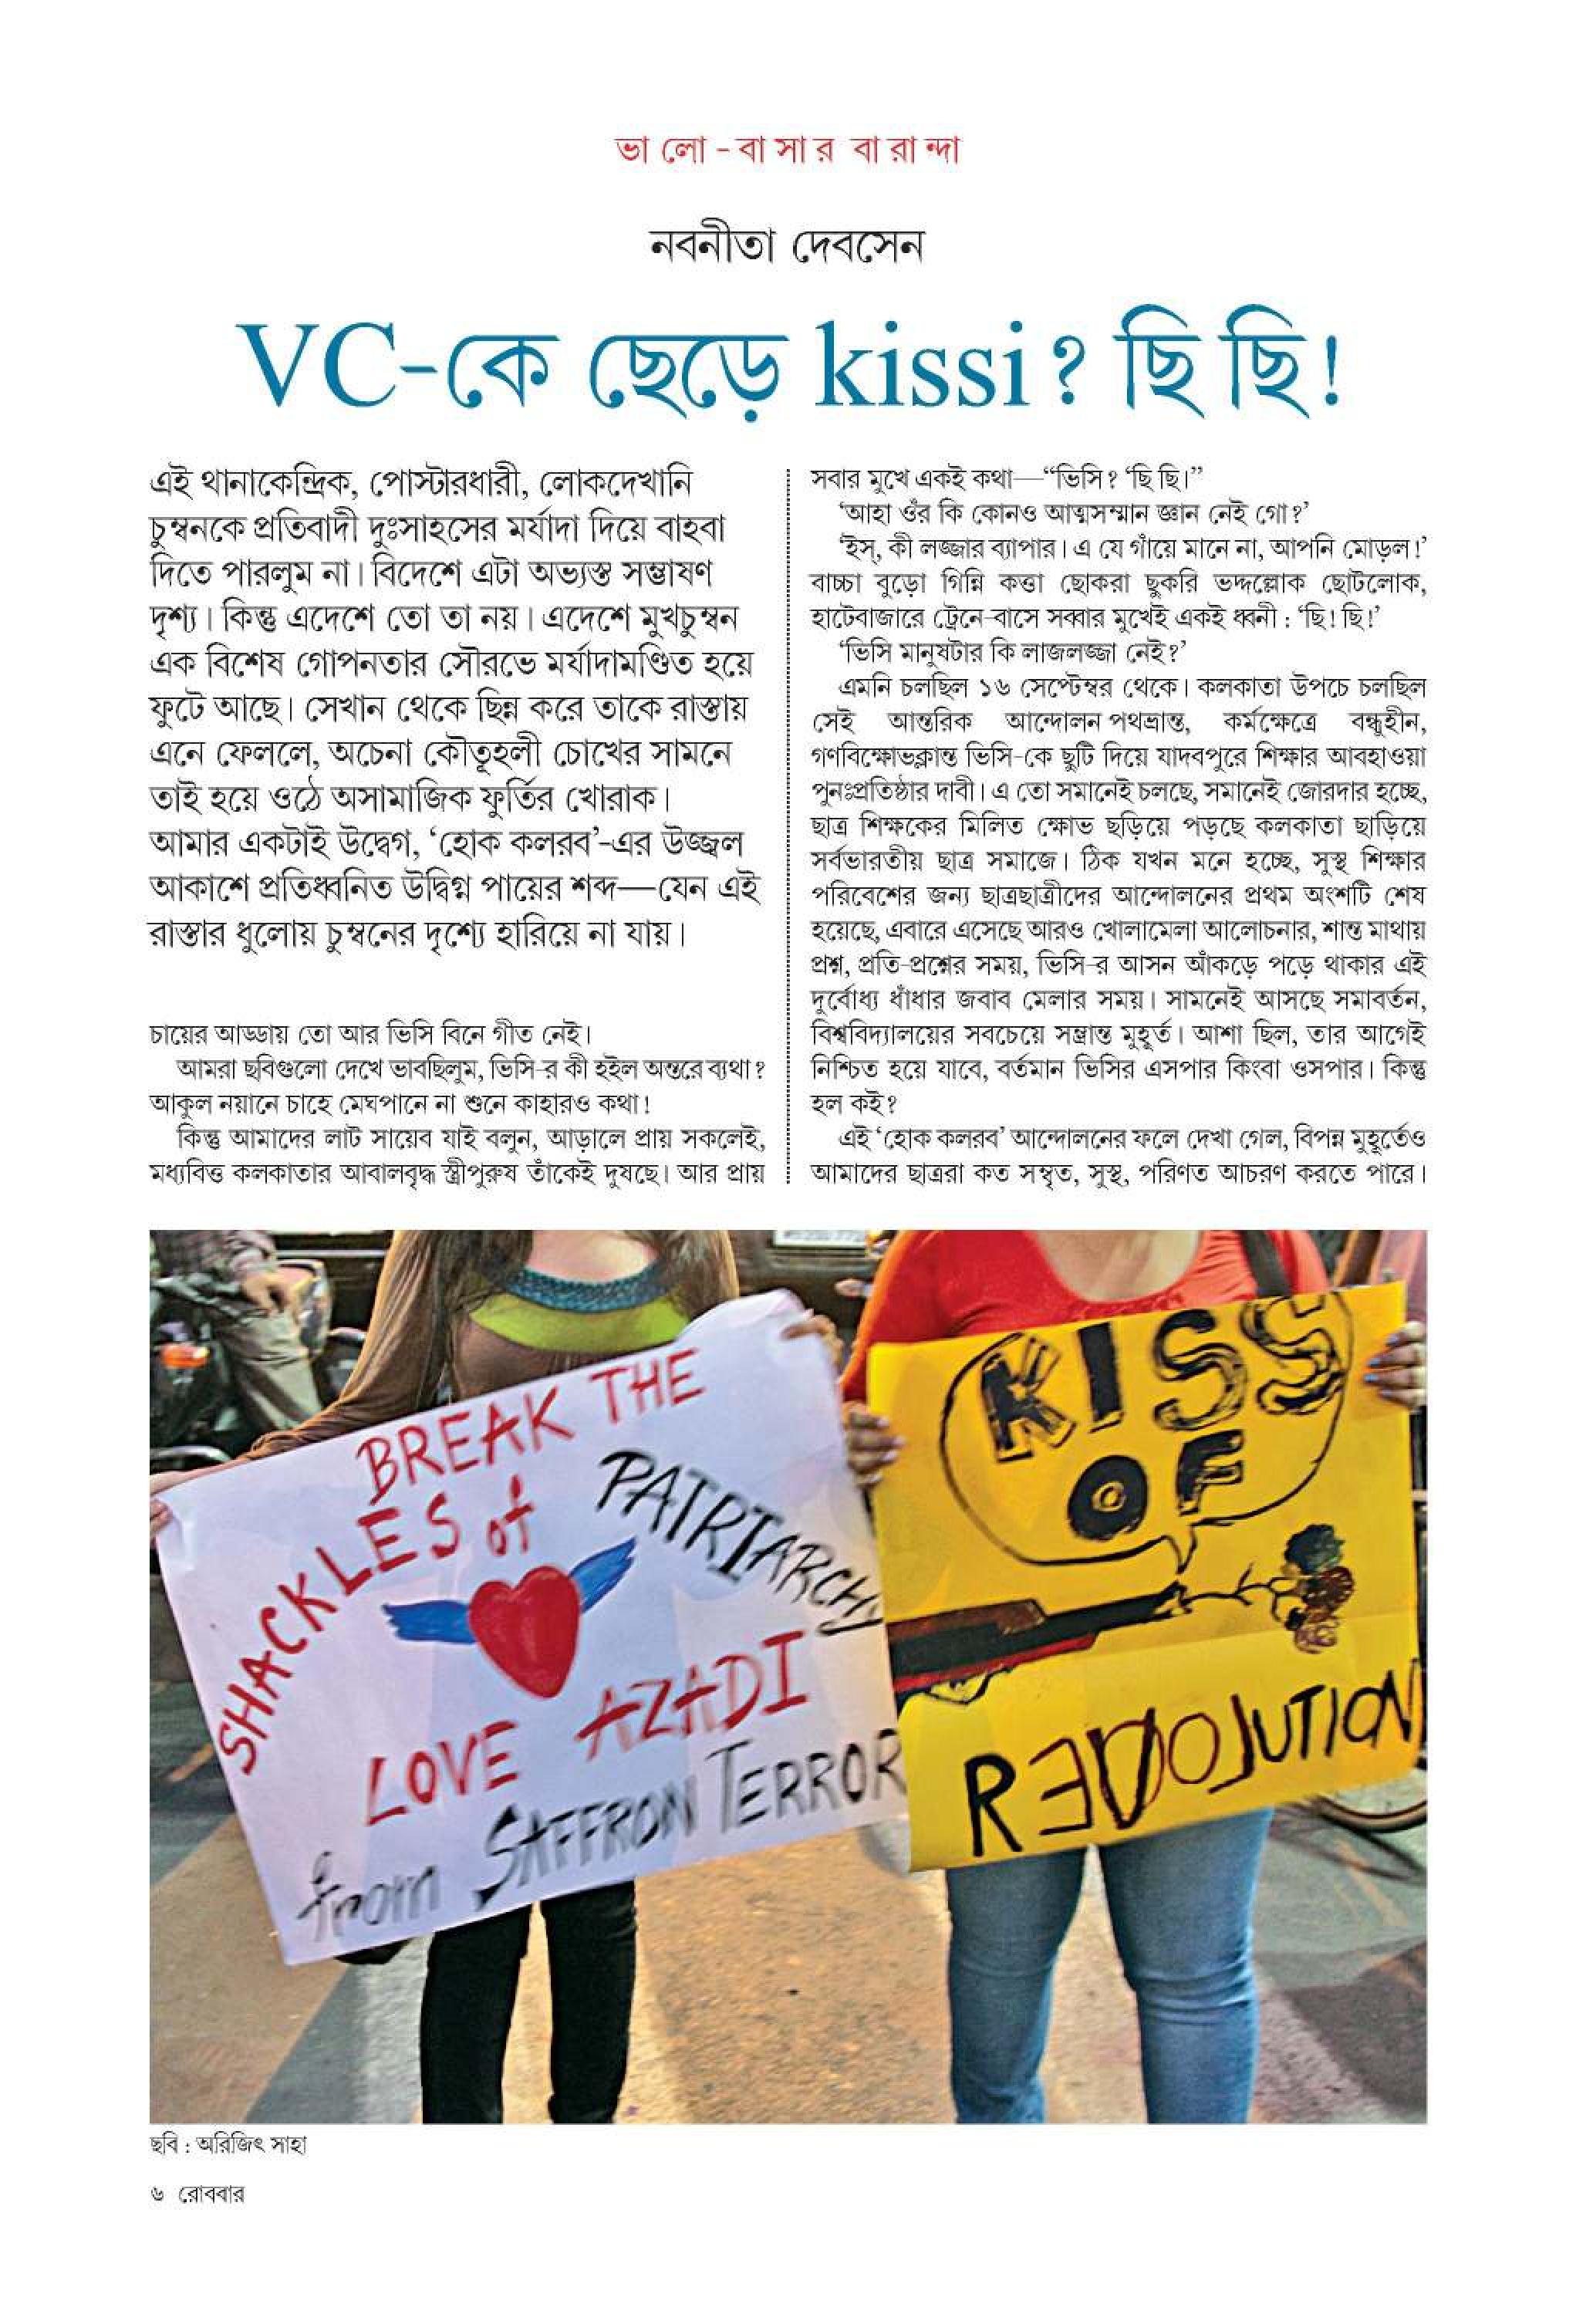 ভালো-বাসার বারান্দা
নবনীতা দেবসেন
VC-কে ছেড়ে kissi? ছি ছি!
এই থানাকেন্দ্রিক, পোস্টারধারী, লোকদেখানি
চুম্বনকে প্রতিবাদী দুঃসাহসের মর্যাদা দিয়ে বাহবা
দিতে পারলুম না। বিদেশে এটা অভ্যস্ত সম্ভাষণ
দৃশ্য। কিন্তু এদেশে তো তা নয়। এদেশে মুখচুম্বন
এক বিশেষ গোপনতার সৌরভে মর্যাদামণ্ডিত হয়ে
ফুটে আছে। সেখান থেকে ছিন্ন করে তাকে রাস্তায়
এনে ফেললে, অচেনা কৌতূহলী চোখের সামনে
তাই হয়ে ওঠে অসামাজিক ফুর্তির খোরাক।
আমার একটাই উদ্বেগ, ‘হোক কলরব’-এর উজ্জ্বল
আকাশে প্রতিধ্বনিত উদ্বিগ্ন পায়ের শব্দ—যেন এই
রাস্তার ধুলোয় চুম্বনের দৃশ্যে হারিয়ে না যায়।
চায়ের আড্ডায় তো আর ভিসি বিনে গীত নেই।
আমরা ছবিগুলো দেখে ভাবছিলুম, ভিসি-র কী হইল অন্তরে ব্যথা?
আকুল নয়ানে চাহে মেঘপানে না শুনে কাহারও কথা!
কিন্তু আমাদের লাট সায়েব যাই বলুন, আড়ালে প্রায় সকলেই,
মধ্যবিত্ত কলকাতার আবালবৃদ্ধ স্ত্রীপুরুষ তাঁকেই দুষছে। আর প্রায়
সবার মুখে একই কথা—“ভিসি? ‘ছি ছি।”
‘আহা ওঁর কি কোনও আত্মসম্মান জ্ঞান নেই গো?’
‘ইস্, কী লজ্জার ব্যাপার। এ যে গাঁয়ে মানে না, আপনি মোড়ল!’
বাচ্চা বুড়ো গিন্নি কত্তা ছোকরা ছুকরি ভদ্দল্লোক ছোটলোক,
হাটেবাজারে ট্রেনে-বাসে সব্বার মুখেই একই ধ্বনী : ‘ছি! ছি!’
‘ভিসি মানুষটার কি লাজলজ্জা নেই?’
এমনি চলছিল ১৬ সেপ্টেম্বর থেকে। কলকাতা উপচে চলছিল
সেই আন্তরিক আন্দোলন পথভ্রান্ত, কর্মক্ষেত্রে বন্ধুহীন,
গণবিক্ষোভক্লান্ত ভিসি-কে ছুটি দিয়ে যাদবপুরে শিক্ষার আবহাওয়া
পুনঃপ্রতিষ্ঠার দাবী। এ তো সমানেই চলছে, সমানেই জোরদার হচ্ছে,
ছাত্র শিক্ষকের মিলিত ক্ষোভ ছড়িয়ে পড়ছে কলকাতা ছাড়িয়ে
সর্বভারতীয় ছাত্র সমাজে। ঠিক যখন মনে হচ্ছে, সুস্থ শিক্ষার
পরিবেশের জন্য ছাত্রছাত্রীদের আন্দোলনের প্রথম অংশটি শেষ
হয়েছে, এবারে এসেছে আরও খোলামেলা আলোচনার, শান্ত মাথায়
প্রশ্ন, প্রতি-প্রশ্নের সময়, ভিসি-র আসন আঁকড়ে পড়ে থাকার এই
দুর্বোধ্য ধাঁধার জবাব মেলার সময়। সামনেই আসছে সমাবর্তন,
বিশ্ববিদ্যালয়ের সবচেয়ে সম্ভ্রান্ত মুহূর্ত। আশা ছিল, তার আগেই
নিশ্চিত হয়ে যাবে, বর্তমান ভিসির এসপার কিংবা ওসপার। কিন্তু
হল কই?
এই ‘হোক কলরব’ আন্দোলনের ফলে দেখা গেল, বিপন্ন মুহূর্তেও
আমাদের ছাত্ররা কত সম্বৃত, সুস্থ, পরিণত আচরণ করতে পারে।
BREAK THE
SHACKLES of
PATRIARCHY
LOVE AZADI
from SAFFRON TERROR
KISS
OF
REVOLUTION
ছবি : অরিজিৎ সাহা
৬ রোববার